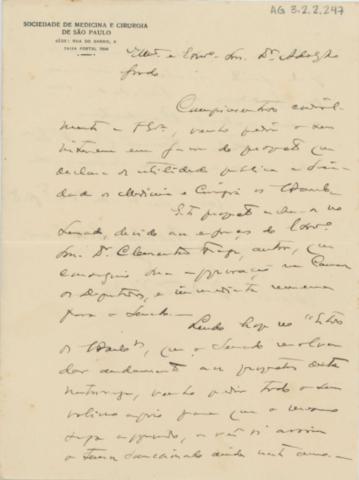 AG 3.2.2.247
SOCIEDADE DE MEDICINA E CIRURGIA
DE SÃO PAULO
SÉDE: RUA DO CARMO, 6
CAIXA POSTAL 1566
Illmo. e Exmo. Snr. Dr. Adolpho
Gordo.
Cumprimentando cordial-
mente a V. Excia., venho pedir o seu
em favor do projecto que
declara de utilidade publica a Socie-
dade de Medicina e Cirurgia de S. Paulo.
Este projecto acha-se no
Senado, devido aos esforços do Exmo.
Snr. Dr. Clementino Fraga, autor, que
conseguiu sua approvação na Camara
dos Deputados, e immediata remessa
para o Senado.
Lendo hoje no "Estado
de S. Paulo", que o Senado resolveu
dar andamento aos projectos desta
natureza, venho pedir todo o seu
valioso apoio para que o mesmo
seja approvado, e assim
sanccionado ainda neste anno.